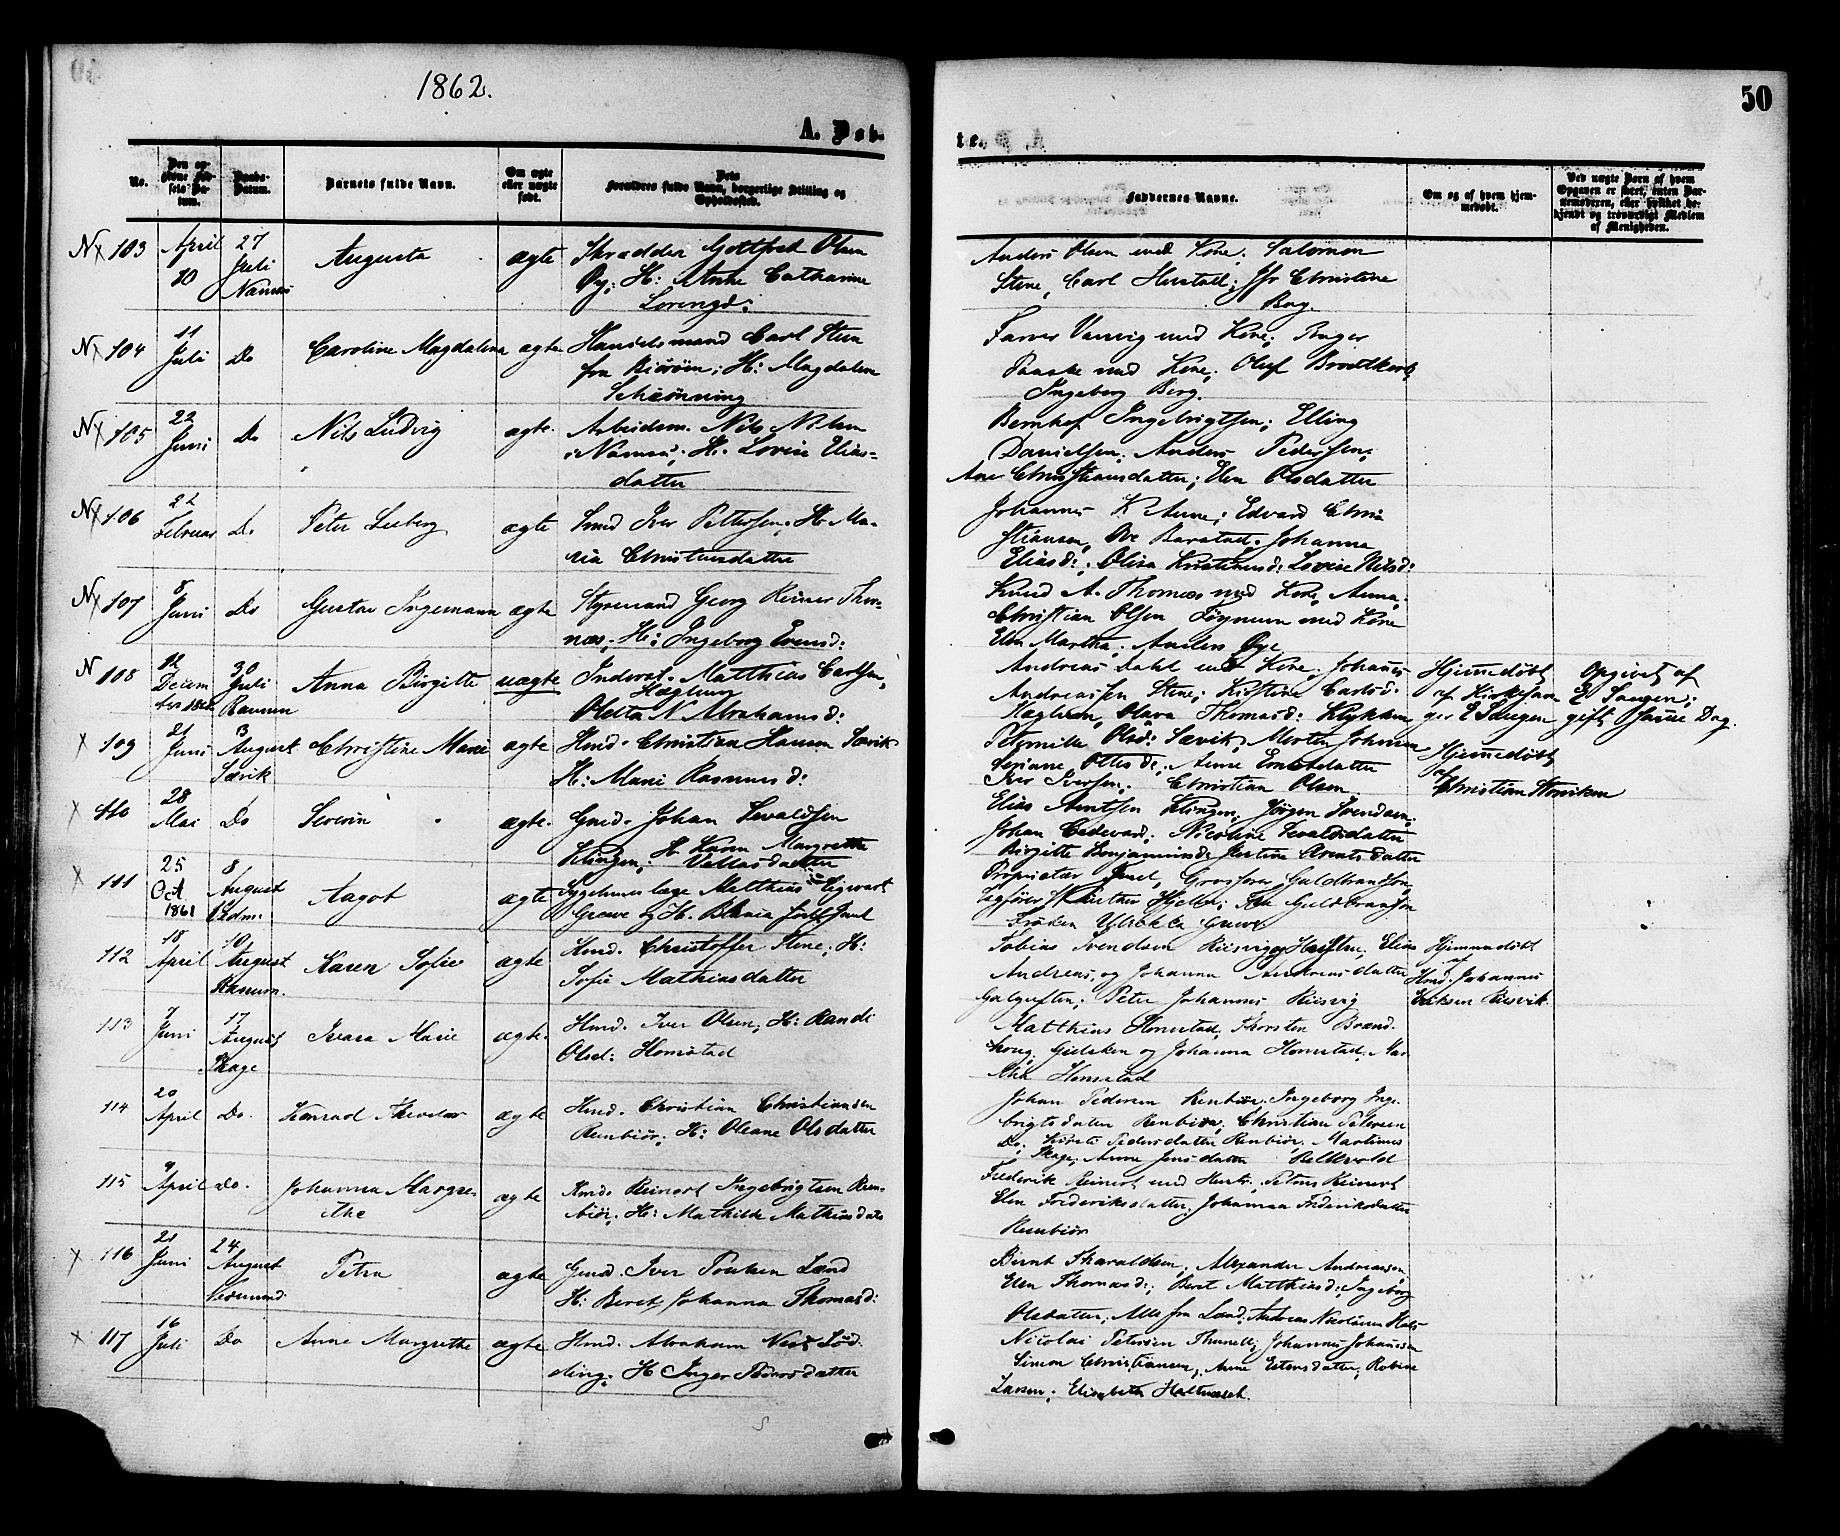 1862.
50
A. Døb-
te.
No.
Den op-
givne Fød-
sels Da-
tum.
Daabs-
Datum.
Barnets fulde Navn.
Om ægte
eller uægte
født.
Dets
Forældres fulde Navn, borgerlige Stilling og
Opholdssted.
Faddernes Navne.
Om og af hvem hjem-
medøbt.
Ved uægte Børn af hvem
Opgaven er skeet, enten Bar-
nemoderen, eller hvilket be-
kjendt og troværdigt Medlem
af Menigheden.
N 103
April
10
27
Juli
Namsos
Augusta
ægte
Skrædder Gottfred Olsen
Øy; H: Anne Catharine
Lorengd:
Anders Olsen med Kone; Salomon
Stene, Carl Hustad; Jfr Christine
Borg.
N 104
11
Juli
Do
Caroline Magdalena
ægte
Handelsmand Carl Steen
fra Biöröen; H: Magdalena
Schiönning
Farver Vanvig med Kone; Bager
Paaske med Kone; Oluf Brodtkorb
Ingeborg Berg.
N 105
22
Juni
Do
Nils Ludvig
ægte.
Arbeidsm. Nils Nilsen
i Namsos; H. Lovise Elias-
datter
Bernhof Ingebrigtsen; Elling
Danielsen; Anders Pedersen;
Ane Christiansdatter; Elen Olsdatter
N 106
22
Februar
Do
Peter Leeberg
ægte
Smed Iver Pettersen; H. Ma-
ria Christensdatter
Johannes K Aune; Edvard Chri
stiansen, Ove Barstad. Johanna
Eliasd:; Olisa Kristensd: Lovise Nilsd:
N 107
8
Juni
Do
Gustav Ingemann
ægte
Styrmand Georg Reiner Thor-
næs; H: Ingeborg Evensd:
Knud A. Thornæs med Kone, Anna;
Christian Olsen Föynum med Kone
Elen Martha; Anders Øye
N 108
12
Decem
ber 1861
30
Juli
Ranum
Anna Birgitte
uægte
Inderst. Matthias Carlsen,
Hæglum
Oletta N Abrahamsd:
Andreas Dahl med Kone; Johannes
Andreassen Stene; Kirstine Carlsd.
Hæglum, Olava Thomasd: Klykken
Hjemmedöbt
af Kirkesan
ger E Saugen
Opgivet af
E Saugen;
gift samme Dag.
109
21
Juni
3
August
Sævik
Christine Marie
ægte
Hmd. Christian Hansen Sævik
H: Marie Rasmusd:
Peternille Olsd: Sævik, Morten Johnsen
Seriane Ottesd:, Anne Ernstdatter
Iver Iversen; Christian Olsen
Hjemmedöbt
af
Christian Storviken
110
28
Mai
Do
Severin
ægte.
Gmd. Johan Sevaldsen
Klingen; H. Karen Margrethe
Vallasdatter
Elias Arntsen Klingen; Jörgen Svendsen;
Johan Cedevard; Nicoline Sevaldsdatter
Birgitte Benjaminsd: Justine Arentsdatter
111
25
Oct
1861
8
August
Aagot
ægte
Sygehuuslæge Matthias Sigwart
Greve og H. Blanca født Juul
Proprietær Juul, Grosserer Guldbrandsen,
112
18
April
10
August
Ranum.
Karen Sofie
ægte
Hmd. Christoffer Stene; H:
Sofie Mathiasdatter
Tobias Svendsen Riisvig og Hustru, Elias
Andreas og Johanna Andreasdatter
Galguften; Peter Johannes Riisvig
Hjemmedöbt
af
Hmd. Johannes
Eriksen Riisvik
113
7
Juni
17
August
Skage
Ivara Marie
ægte.
Hmd. Iver Olsen; H: Randi
Olsd: Homstad
Matthias Homstad, Thorsten Brænd-
houg; Gielsken og Johanna Homstad, Mar
tha Homstad
114
20
April
Do.
Konrad
ægte
Hmd. Christian Christiansen
Rembiör; H: Oleane Olsdatter
Johan Pedersen Rembiör. Ingeborg Inge-
brigtsdatter Rembiör; Christian Petersen
Do; Kirsti Pedersdatter Rembiör. Martinus
Skage; Anne Jensdatter
115
9
April
Do.
Johanna Margre-
the
ægte
Hmd. Reinert Ingebrigtsen Rem-
biör; H: Mathilde Mathiasdatr
Frederik Reinert med Hustr; Petrus Reinert
Elen Frederiksdatter, Johanna Frederiksdatter
Rembiör
116
21
Juni
24
August
Petra
ægte
Gmd. Iver Poulsen Lænd
H: Beret Johanna Thomasd:
Bernt Tharaldsen, Alexander Andreasen,
Elen Thomasd:; Beret Matthiasd:, Ingeborg
Olsdatter, Alle fra Lænd. Andreas Nicolaisen
117
16
Juli
Do
Anne Margrethe
ægte
Hmd. Abraham Vest Lød
ding; H Inger Thorsdatter
Nicolai Petersen Thunell; Johannes Johansen
Simon Christiansen; Anne Estensdatter; Robine
Larsen; Elisabeth